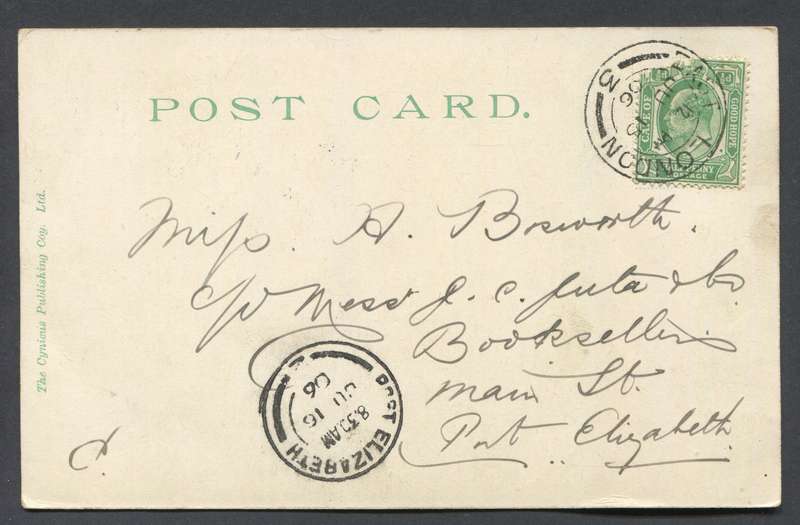 POST CARD.
CAPE OF GOOD HOPE
HALFPENNY
POSTAGE
EAST LONDON
06
Miss. A. Bosworth.
c/o Messrs J. C. Juta & Co
Booksellers
Main St.
Port Elizabeth.
PORT ELIZABETH
8.30AM
JU 16
06
The Cynicus Publishing Coy. Ltd.